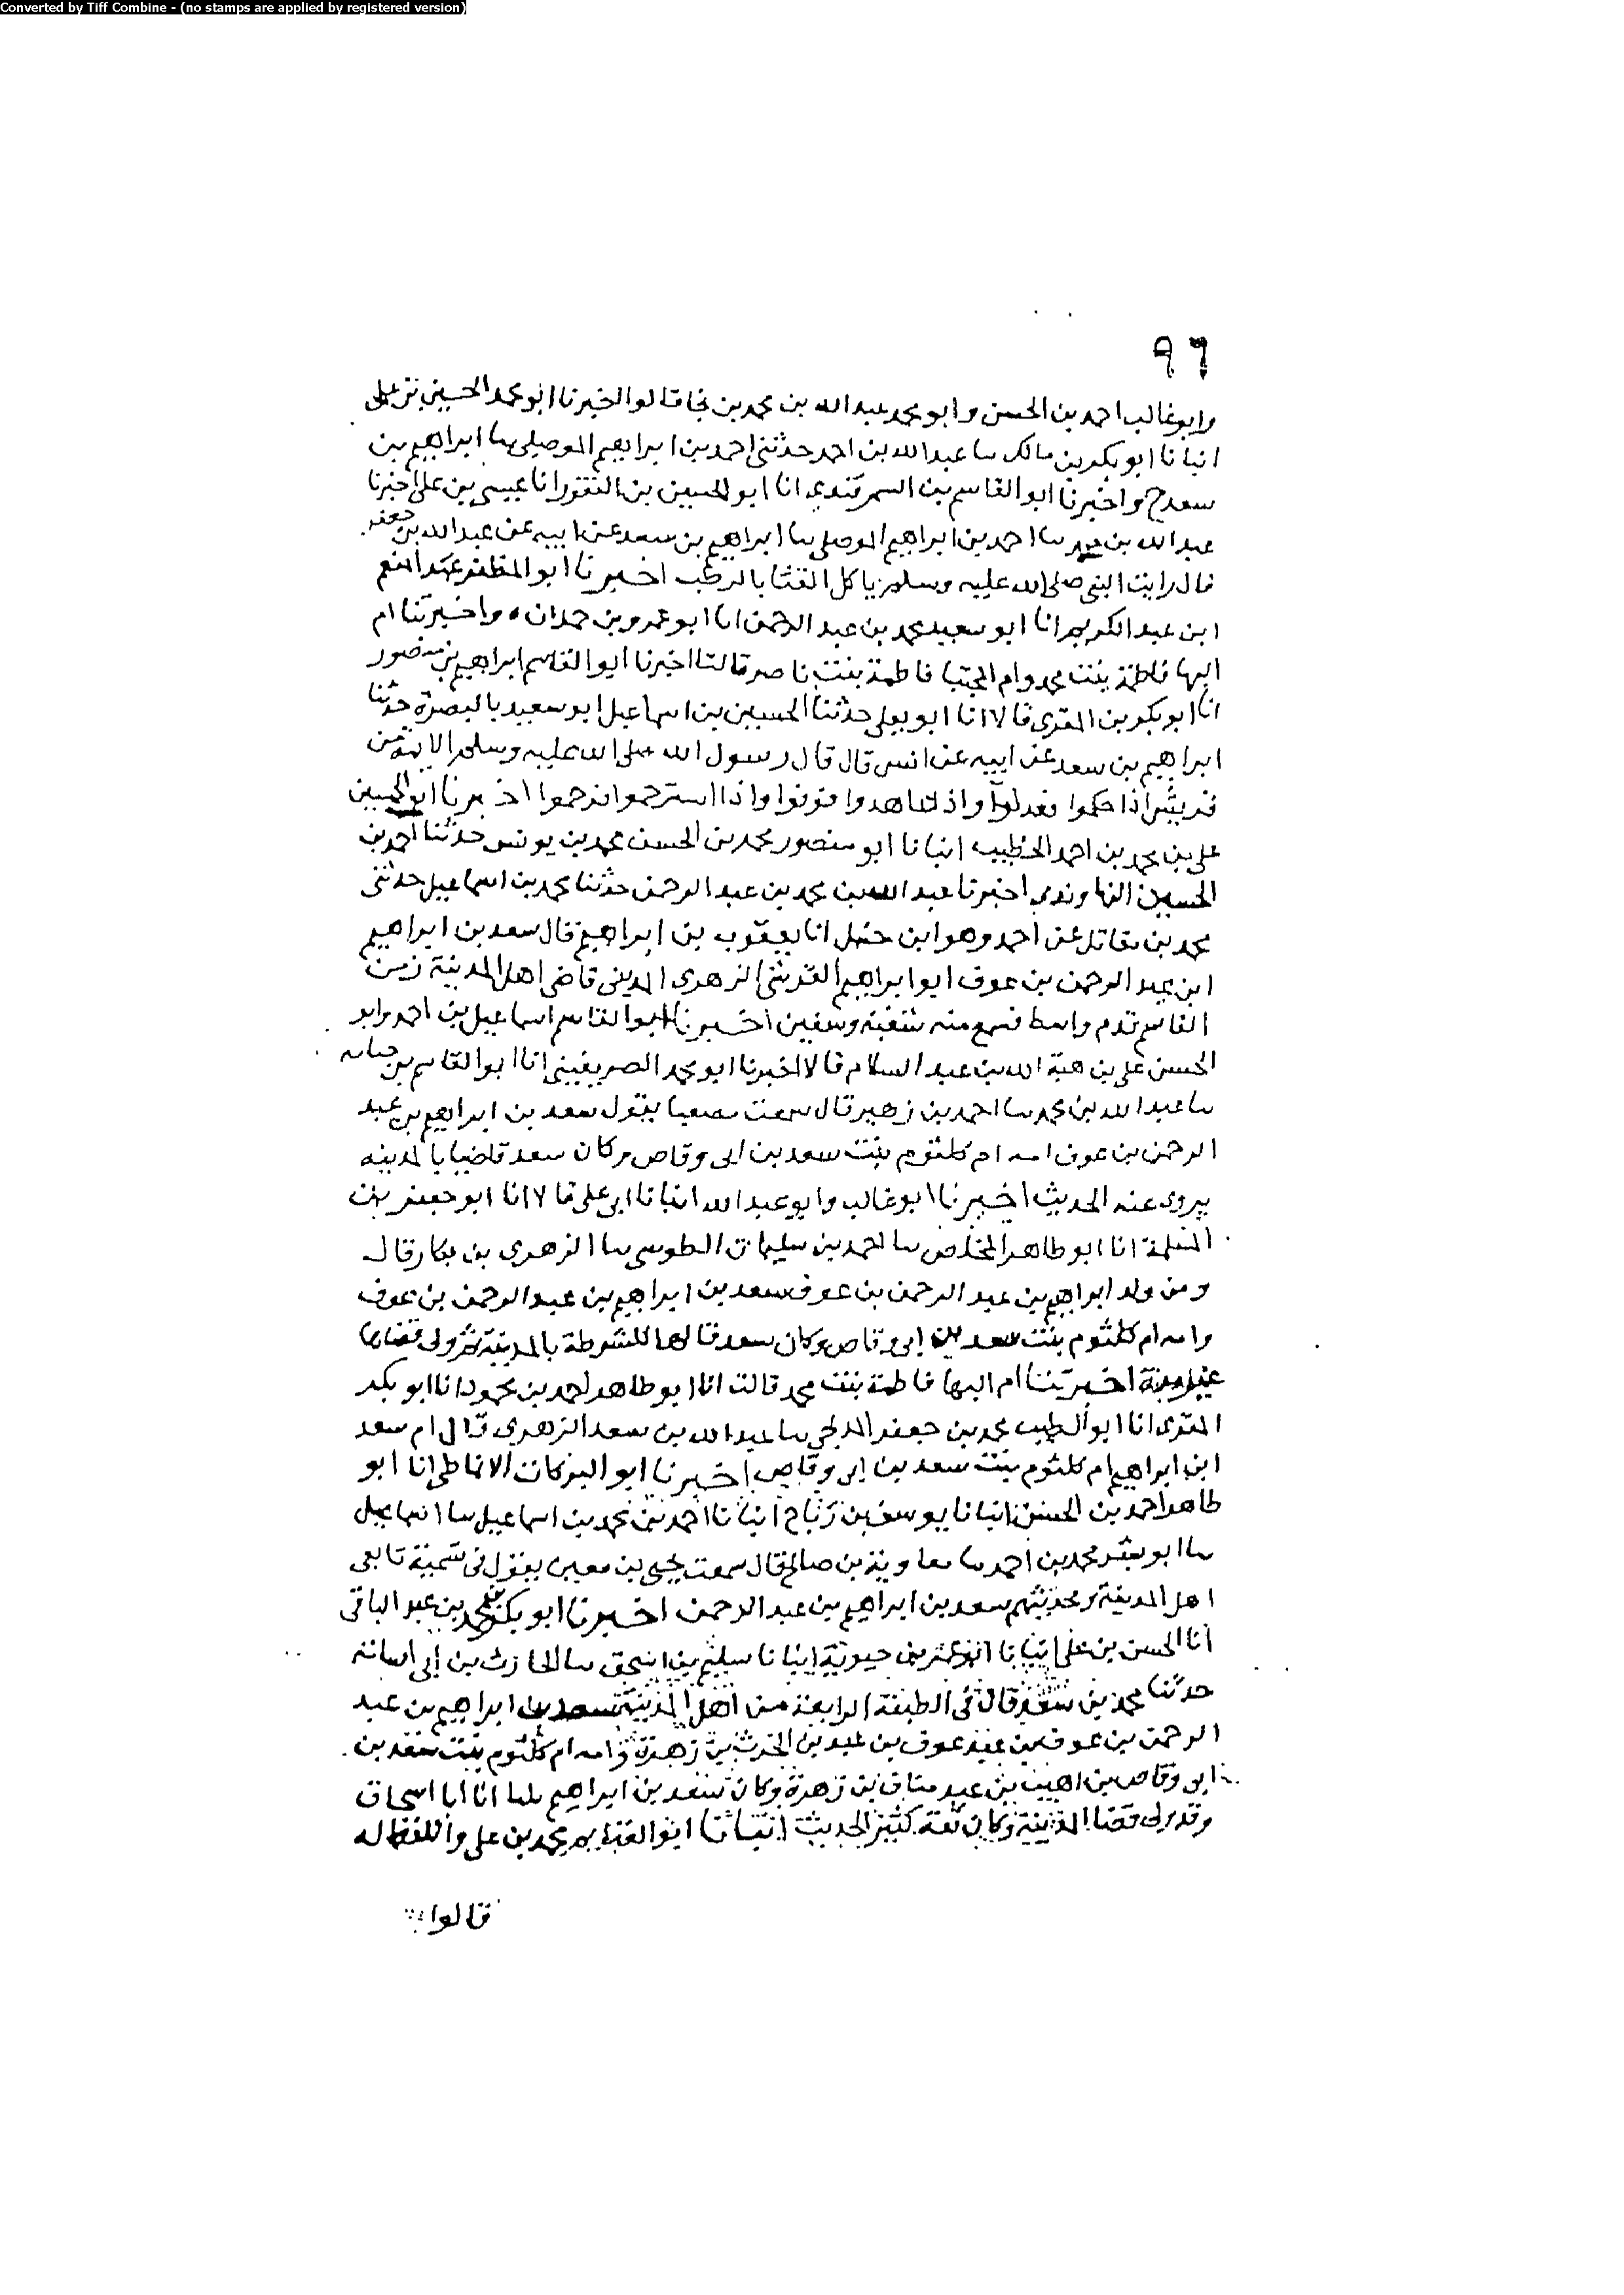 Converted by Tiff Combine - (no stamps are applied by registered version)
٩٦
وابو غالب احمد بن الحسن وابو محمد عبد الله بن محمد بن نجا قالوا اخبرنا ابو محمد الحسن بن على
انبانا ابو بكر بن مالك سا عبد الله بن احمد حدثنى احمد بن ابراهيم الموصلى سا ابراهيم بن
سعد ح واخبرنا ابو القاسم بن السمرقندى انا ابو الحسين بن النقور انا عيسى بن على اخبرنا
عبد الله بن محمد سا احمد بن ابراهيم الموصلى سا ابراهيم بن سعد عن ابيه عن عبد الله بن جعفر
قال رايت النبى صلى الله عليه وسلم ياكل القثا بالرطب اخبرنا ابو المظفر عبد المنعم
ابن عبد الكريم انا ابو سعيد محمد بن عبد الرحمن انا ابو عمرو بن حمدان ه واخبرتنا ام
البها فاطمة بنت محمد وام المجتبا فاطمة بنت ناصر قالتا اخبرنا ابو القاسم ابراهيم بن منصور
انا ابو بكر بن المقرى قالا انا ابو يعلى حدثنا الحسين بن اسماعيل ابو سعيد بالبصرة حدثنا
ابراهيم بن سعد عن ابيه عن انس قال قال رسول الله صلى الله عليه وسلم الايمة من
قريش اذا حكموا فعدلوا واذ عاهدوا فوفوا واذا استرحموا فرحموا اخبرنا ابو الحسين
على بن محمد بن احمد الخطيب انبانا ابو منصور محمد بن الحسن محمد بن يونس حدثنا احمد بن
الحسين النهاوندى اخبرنا عبد الله بن محمد بن عبد الرحمن حدثنا محمد بن اسماعيل حدثنى
محمد بن مقاتل عن احمد وهو ابن حنبل انا يعقوب بن ابراهيم قال سعد بن ابراهيم
ابن عبد الرحمن بن عوف ابو ابراهيم القريشى الزهرى المدينى قاضى اهل المدينة زمن
القاسم قدم واسط فسمع منه شعبة وسفين اخبرنا ابو القاسم اسماعيل بن احمد وابو
الحسن على بن هبة الله بن عبد السلام قالا اخبرنا ابو محمد الصريفينى انا ابو القاسم بن حبابه
سا عبد الله بن محمد سا احمد بن زهير قال سمعت مصعبا يقول سعد بن ابراهيم بن عبد
الرحمن بن عوف امه ام كلثوم بنت سعد بن ابى وقاص وكان سعد قاضيا بالمدينه
يروى عنه الحديث اخبرنا ابو غالب وابو عبد الله انبانا ابى على قالا انا ابو جعفر بن
المسلمة انا ابو طاهر المخلص سا احمد بن سليمان الطوسى سا الزهرى بن بكار قال
ومن ولد ابراهيم بن عبد الرحمن بن عوف سعد بن ابراهيم بن عبد الرحمن بن عوف
وامه ام كلثوم بنت سعد بن ابى وقاص وكان سعد للشرطة بالمدينة ولى قضاها
غير مرة اخبرتنا ام البها فاطمة بنت محمد قالت انا ابو طاهر احمد بن محمود انا ابو بكر
المقرى انا ابو الطيب محمد بن جعفر سا عبد الله بن سعد الزهرى قال ام سعد
ابن ابراهيم ام كلثوم بنت سعد بن ابى وقاص اخبرنا ابو البركات الانماطى انا ابو
طاهر احمد بن الحسن انبانا يوسف بن رباح انبانا احمد بن محمد بن اسماعيل سا اسماعيل
سا ابو بشر محمد بن احمد سا معاوية بن صالح قال سمعت يحيى بن معين يقول فى تسمية تابعى
اهل المدينة ومحدثيهم سعد بن ابراهيم بن عبد الرحمن اخبرنا ابو بكر محمد بن عبد الباقى
انا الحسن بن على انبانا ابو عمر بن حيوية انبانا سليم بن اسحق سا الحارث بن ابى اسامة
حدثنا محمد بن سعد قال فى الطبقة الرابعة من اهل المدينة سعد بن ابراهيم بن عبد
الرحمن بن عوف بن عبد عوف بن عبد بن الحرث بن زهرة وامه ام كلثوم بنت سعد بن
ابى وقاص بن اهيب بن عبد مناف بن زهرة وكان سعد بن ابراهيم ابا اسحاق
وقد ولى قضا المدينة وكان ثقة كثير الحديث انبانا ابو الغنايم محمد بن على واللفظ له
قالوا